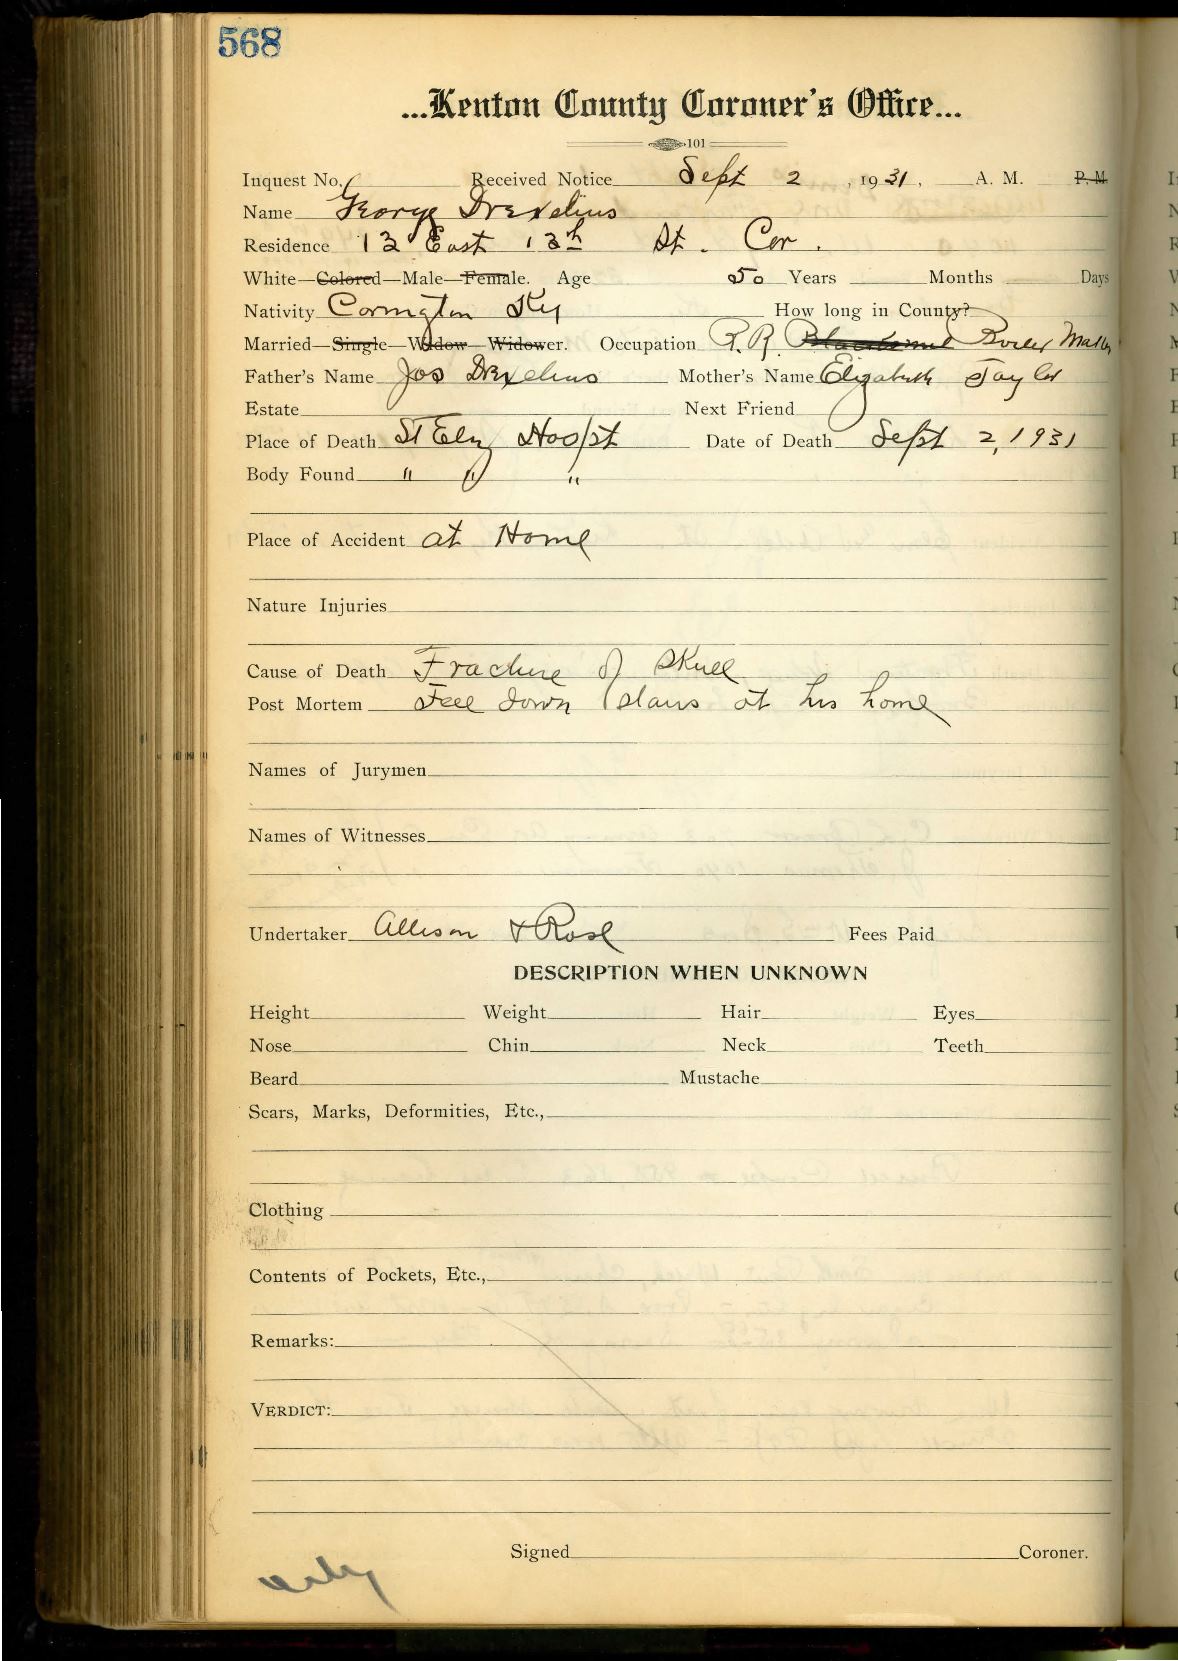 568
...Kenton County Coroner's Office...
101
Inquest No. Received Notice Sept 2, 1931, A. M. P. M.
Name George Drexelius
Residence 13 East 13th St. Cov.
White—Colored—Male—Female. Age 50 Years Months Days
Nativity Covington Ky How long in County?
Married—Single—Widow—Widower. Occupation R.R. Blacksmith Boiler Maker
Father's Name Jos Drexelius Mother's Name Elizabeth Taylor
Estate Next Friend
Place of Death St Eliz Hospt Date of Death Sept 2, 1931
Body Found " " "
Place of Accident at Home
Nature Injuries
Cause of Death Fracture of Skull
Post Mortem Fell down stairs at his home
Names of Jurymen
Names of Witnesses
Undertaker Allison & Rose Fees Paid
DESCRIPTION WHEN UNKNOWN
Height Weight Hair Eyes
Nose Chin Neck Teeth
Beard Mustache
Scars, Marks, Deformities, Etc.,
Clothing
Contents of Pockets, Etc.,
Remarks:
VERDICT:
Signed Coroner.